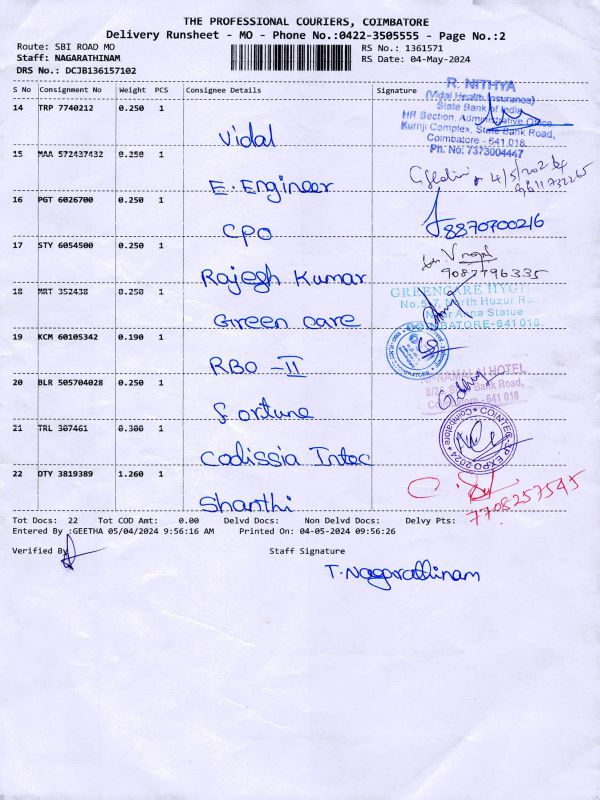 THE PROFESSIONAL COURIERS, COIMBATORE
Delivery Runsheet - MO - Phone No.:0422-3505555 - Page No.:2
Route: SBI ROAD MO RS No.: 1361571
Staff: NAGARATHINAM RS Date: 04-May-2024
DRS No.: DCJB136157102
S No Consignment No Weight PCS Consignee Details Signature
R. NITHYA
(Vidal Health Insurance)
State Bank of India
14 TRP 7740212 0.250 1
HR Section, Administrative Office
Kurinji Complex, State Bank Road,
Vidal Coimbatore - 641 018.
Ph. No: 7373004447
15 MAA 572437432 0.250 1
4/5/2024
E. Engineer
16 PGT 6026700 0.250 1
CPO 8870700216
17 STY 6054500 0.250 1
Rajegh Kumar 9087796335
18 MRT 352438 0.250 1
GREENCARE HYGI
North Huzur Road
Anna Statue
Green care COIMBATORE-641 018.
19 KCM 60105342 0.190 1
RBO - II
ANNAMALAI HOTEL
20 BLR 505704028 0.250 1
Bank Road,
Coimbatore - 641 018
fortune
21 TRL 307461 0.300 1
Codissia Intec
22 DTY 3819389 1.260 1
Shanthi 7708257545
Tot Docs: 22 Tot COD Amt: 0.00 Delvd Docs: Non Delvd Docs: Delvy Pts:
Entered By :GEETHA 05/04/2024 9:56:16 AM Printed On: 04-05-2024 09:56:26
Verified By Staff Signature
T. Nagarathinam